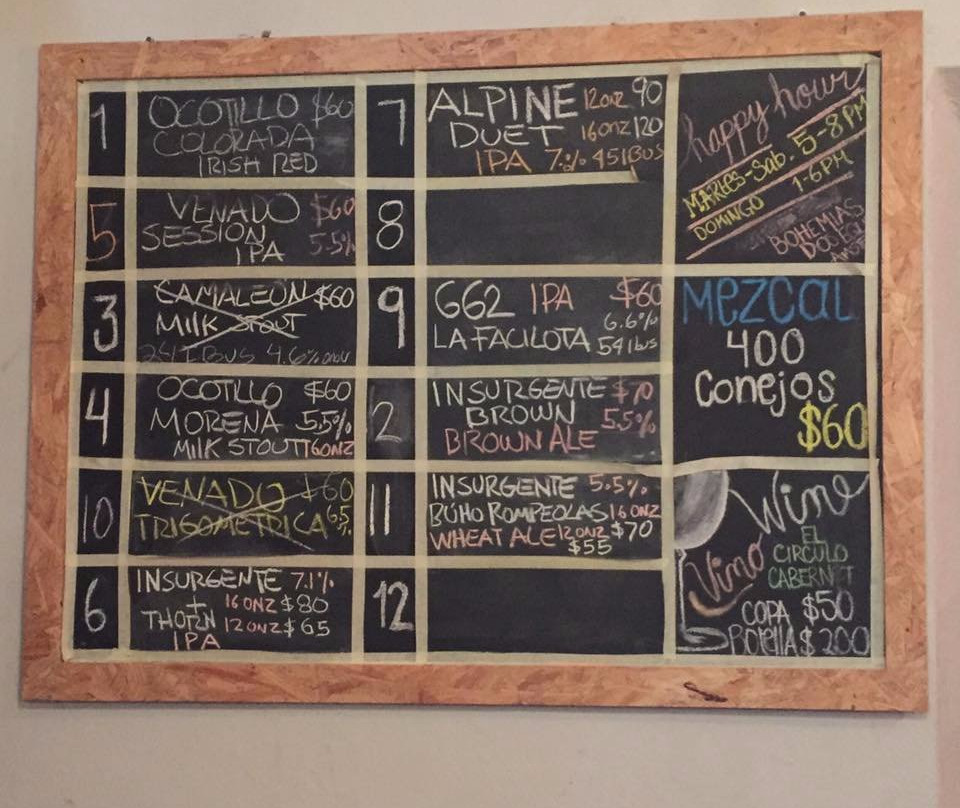 1
OCOTILLO $60
COLORADA
IRISH RED
5
VENADO $60
SESSION 5.5%
IPA
3
CAMALEON $60
MILK STOUT
IBUS 4.6%
4
OCOTILLO $60
MORENA 5.5%
MILK STOUT 16ONZ
10
VENADO $60
TRIGOMETRICA 6.5%
6
INSURGENTE 7.1%
+ 16 ONZ $80
THORN 12 ONZ $65
IPA
7
ALPINE 12onz 90
DUET 16onz 120
IPA 7% 45IBUS
8
9
662 IPA $60
6.6%
LA FACILOTA 54 Ibus
2
INSURGENTE $70
BROWN 5.5%
BROWN ALE
11
INSURGENTE 5.5%
BÚHO ROMPEOLAS 16 ONZ
WHEAT ALE 12ONZ $70
$55
12
happy hour
MARTES-SAb. 5-8PM
DOMINGO 1-6PM
BOHEMIAS
Mezcal
400
Conejos
$60
Wine
Vino
EL
CIRCULO
CABERNET
COPA $50
BOTELLA $200